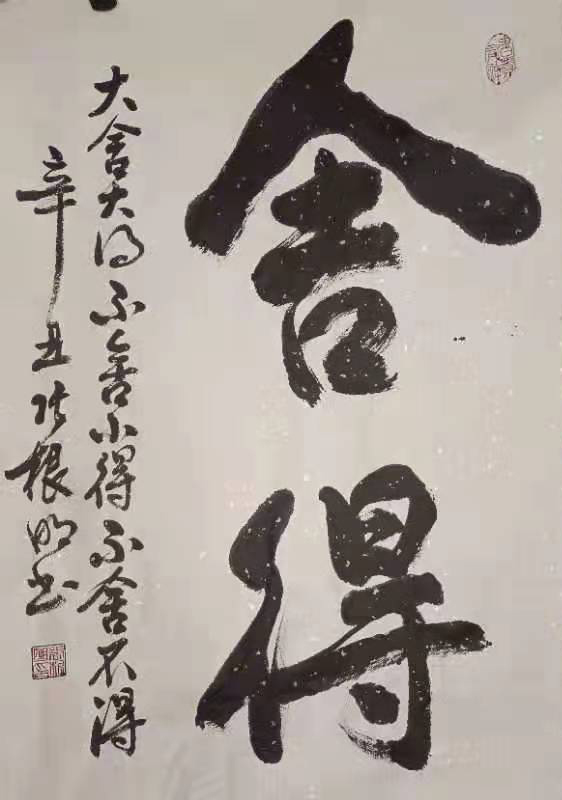 舍得
大舍大得不舍小得不舍不得
辛丑张根明书